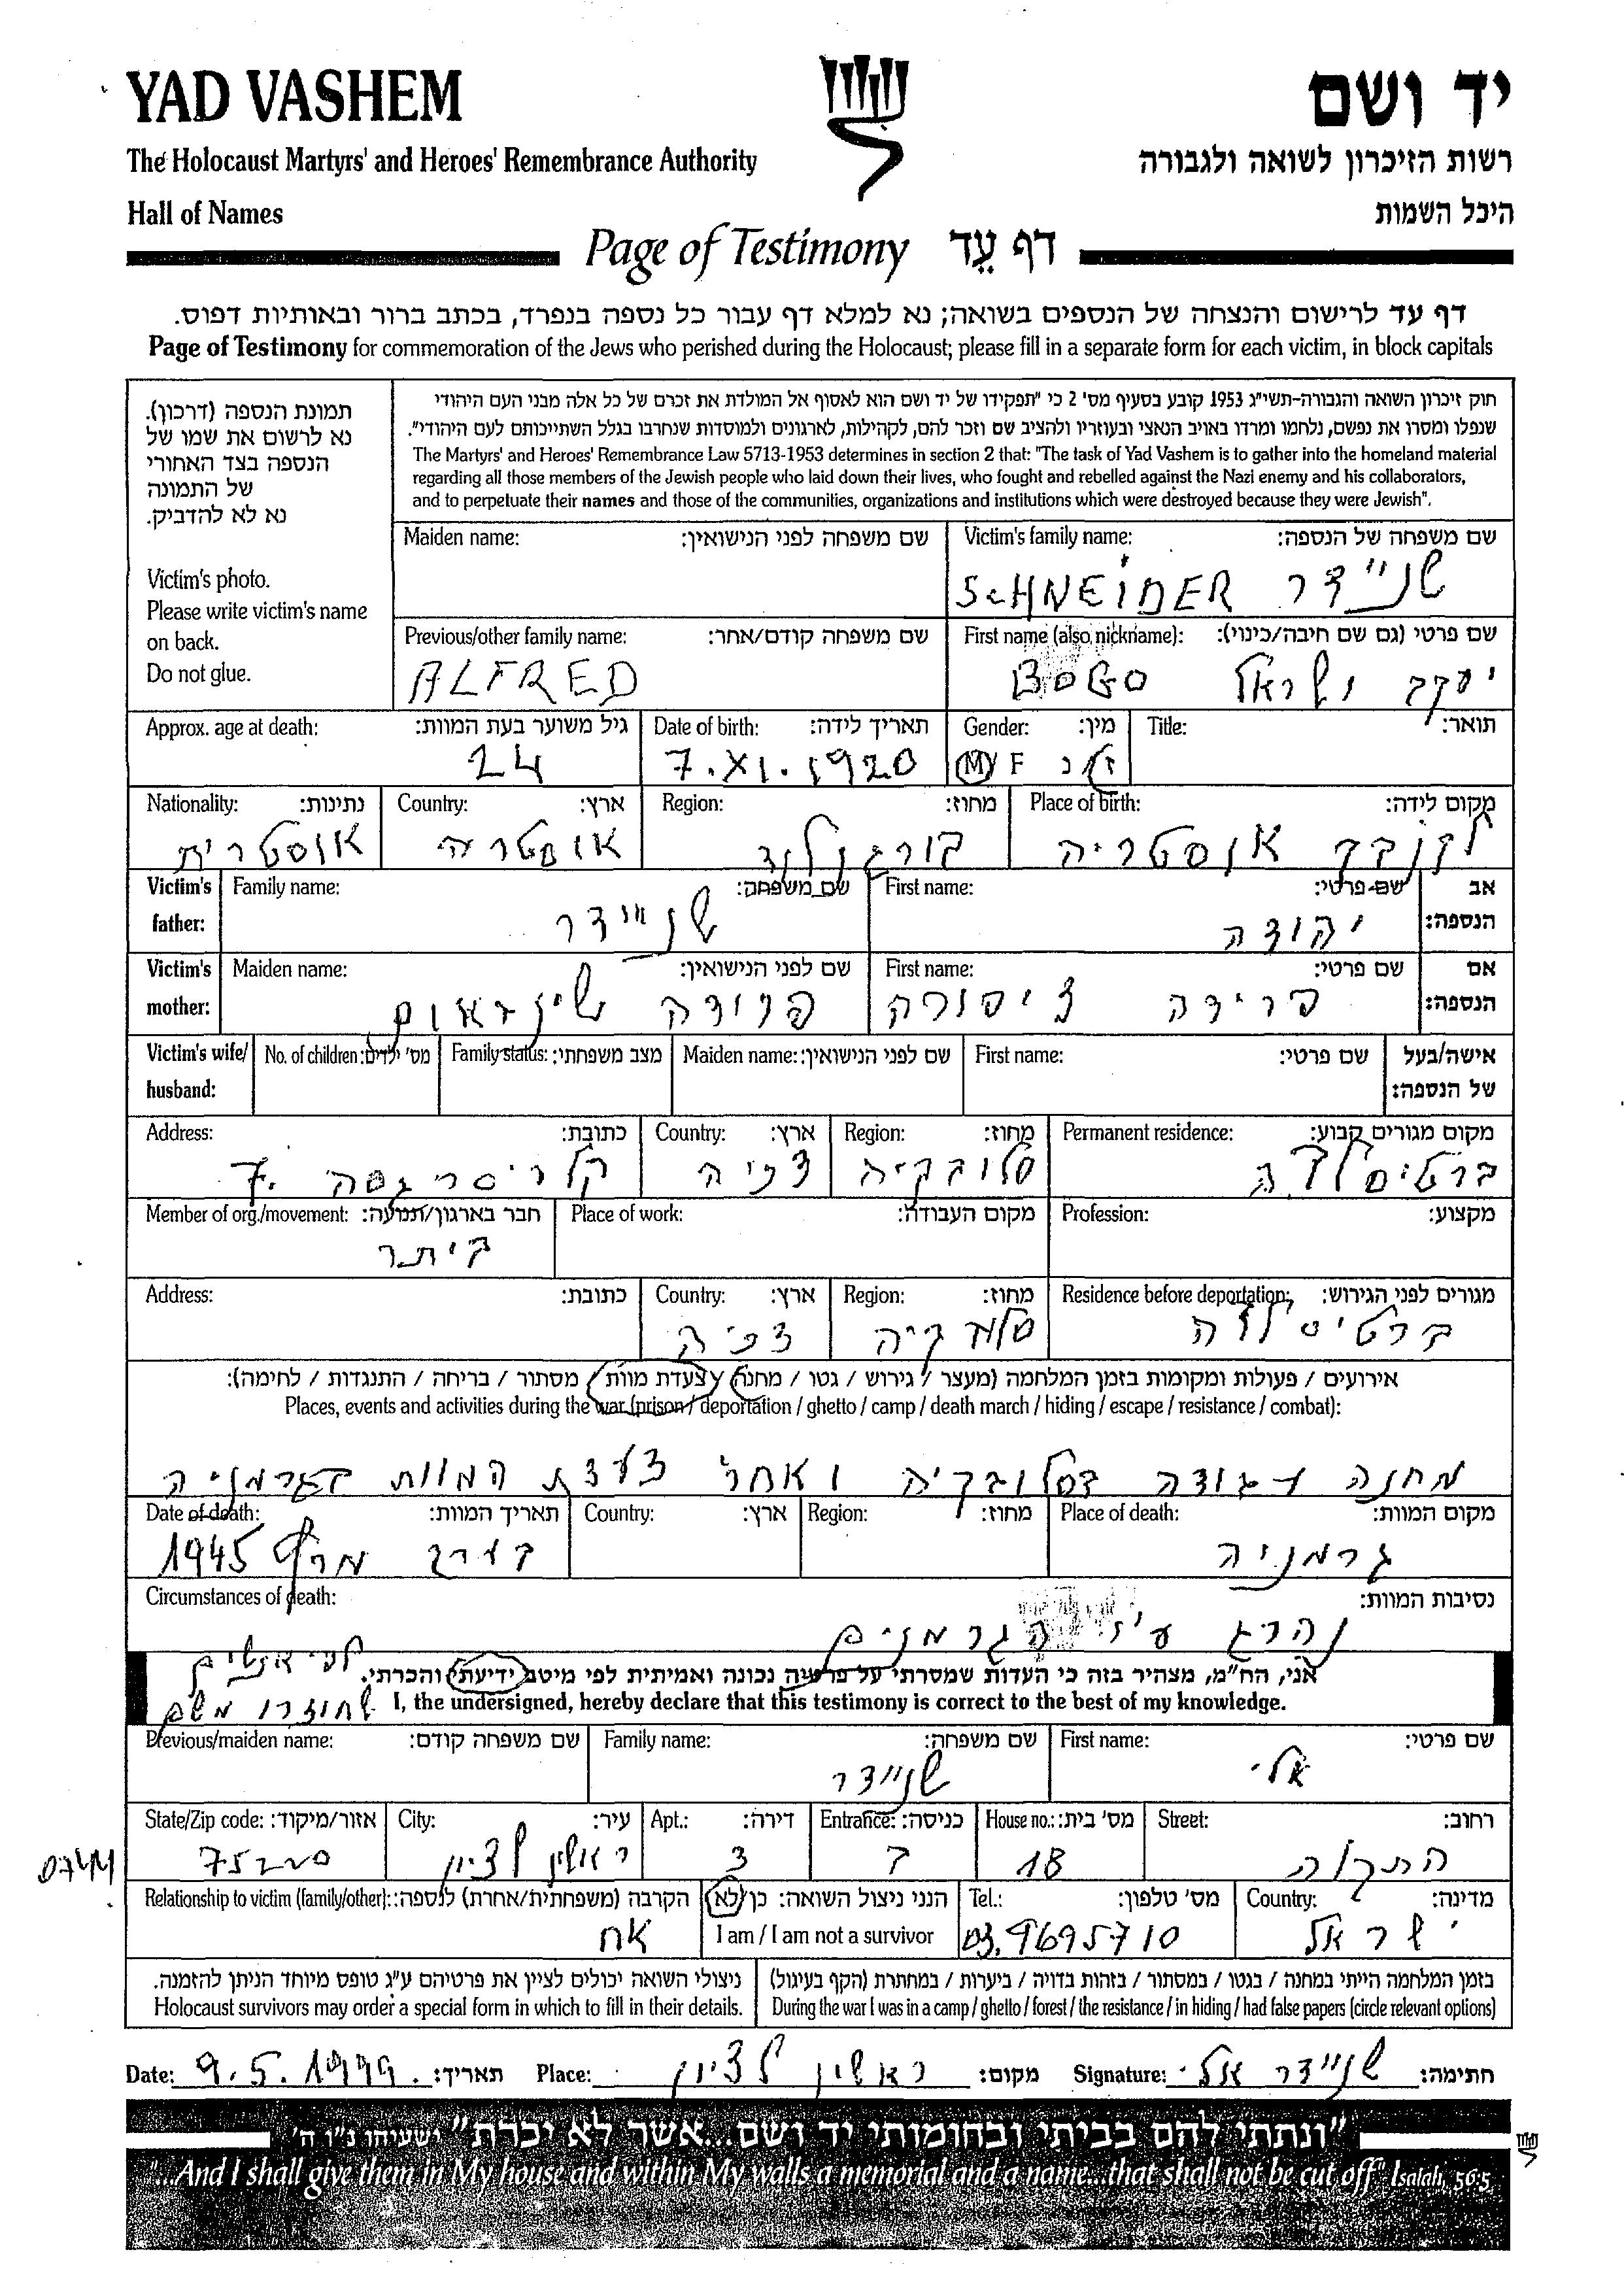 YAD VASHEM יד ושם
The Holocaust Martyrs' and Heroes' Remembrance Authority רשות הזיכרון לשואה ולגבורה
Hall of Names היכל השמות
Page of Testimony דף עֵד
דף עד לרישום והנצחה של הנספים בשואה; נא למלא דף עבור כל נספה בנפרד, בכתב ברור ובאותיות דפוס.
Page of Testimony for commemoration of the Jews who perished during the Holocaust; please fill in a separate form for each victim, in block capitals
תמונת הנספה (דרכון).
נא לרשום את שמו של
הנספה בצד האחורי
של התמונה
נא לא להדביק.
Victim's photo.
Please write victim's name
on back.
Do not glue.
חוק זיכרון השואה והגבורה-תשי"ג 1953 קובע בסעיף מס' 2 כי "תפקידו של יד ושם הוא לאסוף אל המולדת את זכרם של כל אלה מבני העם היהודי
שנפלו ומסרו את נפשם, נלחמו ומרדו באויב הנאצי ובעוזריו ולהציב שם וזכר להם, לקהילות, לארגונים ולמוסדות שנחרבו בגלל השתייכותם לעם היהודי".
The Martyrs' and Heroes' Remembrance Law 5713-1953 determines in section 2 that: "The task of Yad Vashem is to gather into the homeland material
regarding all those members of the Jewish people who laid down their lives, who fought and rebelled against the Nazi enemy and his collaborators,
and to perpetuate their names and those of the communities, organizations and institutions which were destroyed because they were Jewish".
Maiden name: שם משפחה לפני הנישואין: Victim's family name: שם משפחה של הנספה:
SCHNEIDER שניידר
Previous/other family name: שם משפחה קודם/אחר: First name (also nickname): שם פרטי (גם שם חיבה/כינוי):
ALFRED BOBO יעקב ישראל
Approx. age at death: גיל משוער בעת המוות: Date of birth: תאריך לידה: Gender: מין: Title: תואר:
24 7.XI.1920 M F ז/נ
Nationality: נתינות: Country: ארץ: Region: מחוז: Place of birth: מקום לידה:
אוסטרית אוסטריה בורגנלנד אוסטריה
Victim's father: Family name: שם משפחה: First name: שם פרטי: אב הנספה:
שניידר יהודה
Victim's mother: Maiden name: שם לפני הנישואין: First name: שם פרטי: אם הנספה:
פרידה ציפורה
Victim's wife/ husband: No. of children: מס' ילדים: Family status: מצב משפחתי: Maiden name: שם לפני הנישואין: First name: שם פרטי: אישה/בעל של הנספה:
Address: כתובת: Country: ארץ: Region: מחוז: Permanent residence: מקום מגורים קבוע:
קלריסרגסה 7. צכיה סלובקיה ברטיסלבה
Member of org./movement: חבר בארגון/תנועה: Place of work: מקום העבודה: Profession: מקצוע:
ביתר
Address: כתובת: Country: ארץ: Region: מחוז: Residence before deportation: מגורים לפני הגירוש:
צכיה סלובקיה ברטיסלבה
אירועים / פעולות ומקומות בזמן המלחמה (מעצר / גירוש / גטו / מחנה / צעדת מוות / מסתור / בריחה / התנגדות / לחימה):
Places, events and activities during the war (prison / deportation / ghetto / camp / death march / hiding / escape / resistance / combat):
מחנה עבודה בסלובקיה ואחר צעדת המוות בגרמניה
Date of death: תאריך המוות: Country: ארץ: Region: מחוז: Place of death: מקום המוות:
בערב מרץ 1945 גרמניה
Circumstances of death: נסיבות המוות:
נהרג ע"י הגרמנים
לפי אנשים
אני, הח"מ, מצהיר בזה כי העדות שמסרתי על פרטיה נכונה ואמיתית לפי מיטב ידיעתי והכרתי.
שחזרו משם
I, the undersigned, hereby declare that this testimony is correct to the best of my knowledge.
Previous/maiden name: שם משפחה קודם: Family name: שם משפחה: First name: שם פרטי:
שניידר אלי
State/Zip code: אזור/מיקוד: City: עיר: Apt.: דירה: Entrance: כניסה: House no.: מס' בית: Street: רחוב:
75220 ראשון לציון 3 ב 18 התקוה
Relationship to victim (family/other): הקרבה (משפחתית/אחרת) לנספה: הנני ניצול השואה: כן/לא Tel.: מס' טלפון: Country: מדינה:
אח I am / I am not a survivor 03.9695710 ישראל
ניצולי השואה יכולים לציין את פרטיהם ע"ג טופס מיוחד הניתן להזמנה. בזמן המלחמה הייתי במחנה / בגטו / במסתור / בזהות בדויה / ביערות / במחתרת (הקף בעיגול)
Holocaust survivors may order a special form in which to fill in their details. During the war I was in a camp / ghetto / forest / the resistance / in hiding / had false papers (circle relevant options)
Date: 9.5.1999. תאריך: Place: ראשון לציון מקום: Signature: שניידר אלי חתימה:
"ונתתי להם בביתי ובחומותי יד ושם...אשר לא יכרת" ישעיהו נ"ו ה'
"...And I shall give them in My house and within My walls a memorial and a name...that shall not be cut off" Isaiah, 56:5